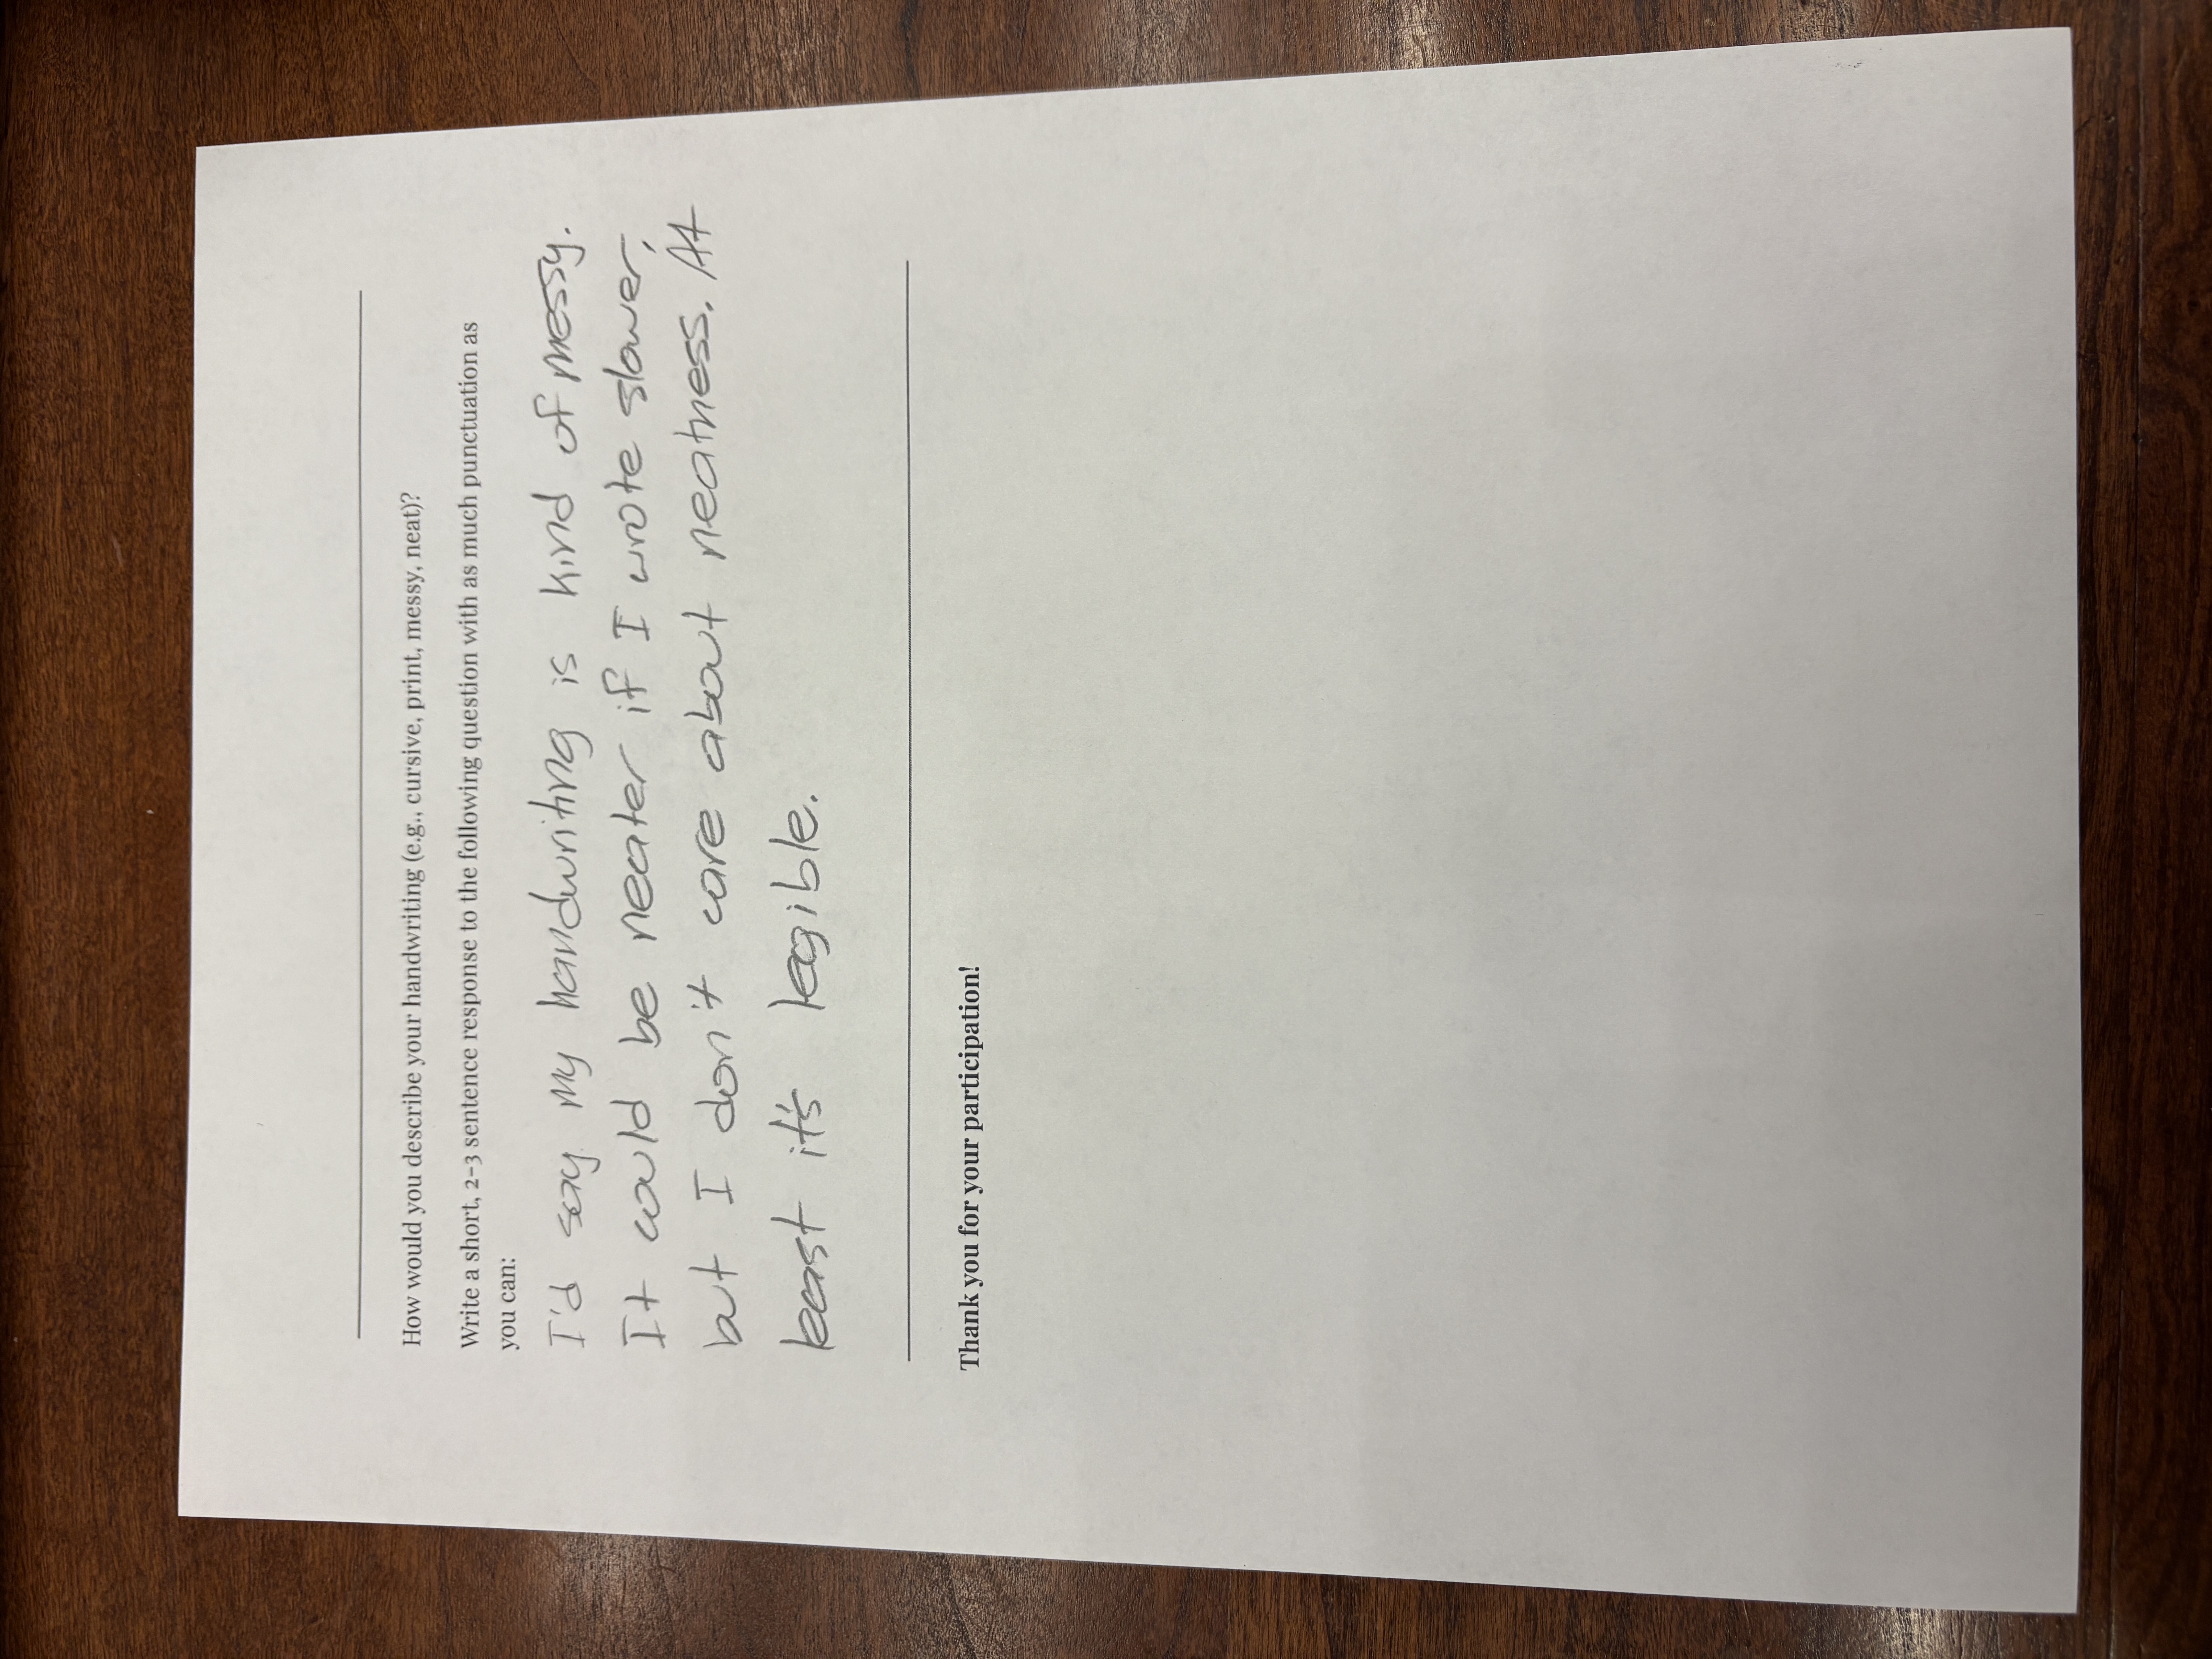 How would you describe your handwriting (e.g., cursive, print, messy, neat)?
Write a short, 2-3 sentence response to the following question with as much punctuation as
you can:
I'd say my handwriting is kind of messy.
It could be neater if I wrote slower,
but I don't care about neatness. At
least it's legible.
Thank you for your participation!